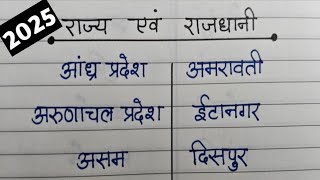 2025
राज्य एवं राजधानी
आंध्र प्रदेश अमरावती
अरुणाचल प्रदेश ईटानगर
असम दिसपुर